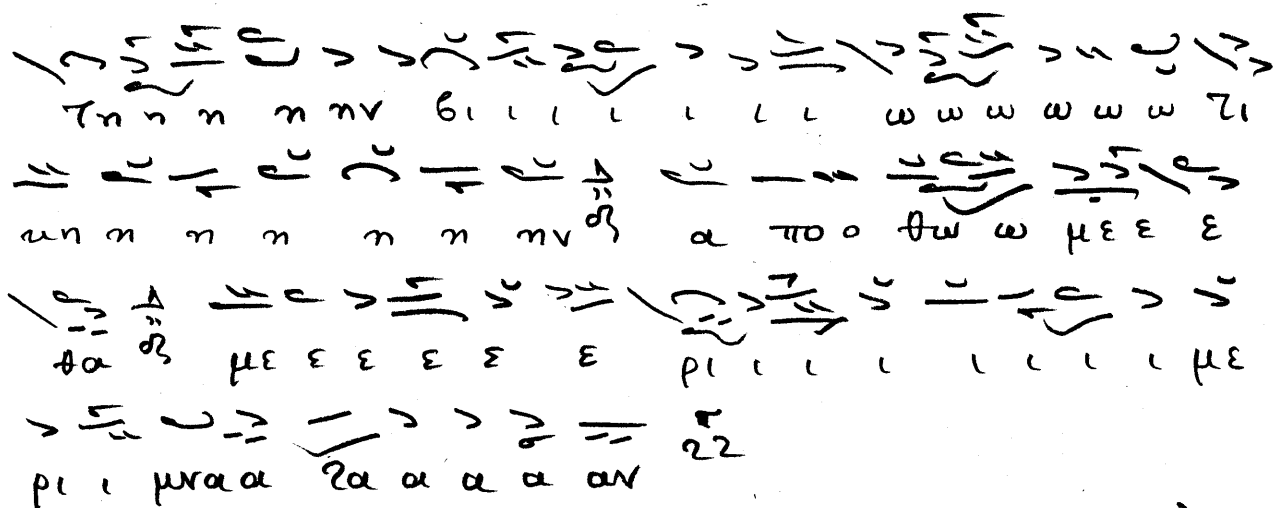 τη η η η ην βι ι ι ι ι ι ι ω ω ω ω ω ω τι
κη η η η η η ην α πο ο θω ω με ε ε
θα με ε ε ε ε ε ρι ι ι ι ι ι ι ι με
ρι ι μνα α α α α αν